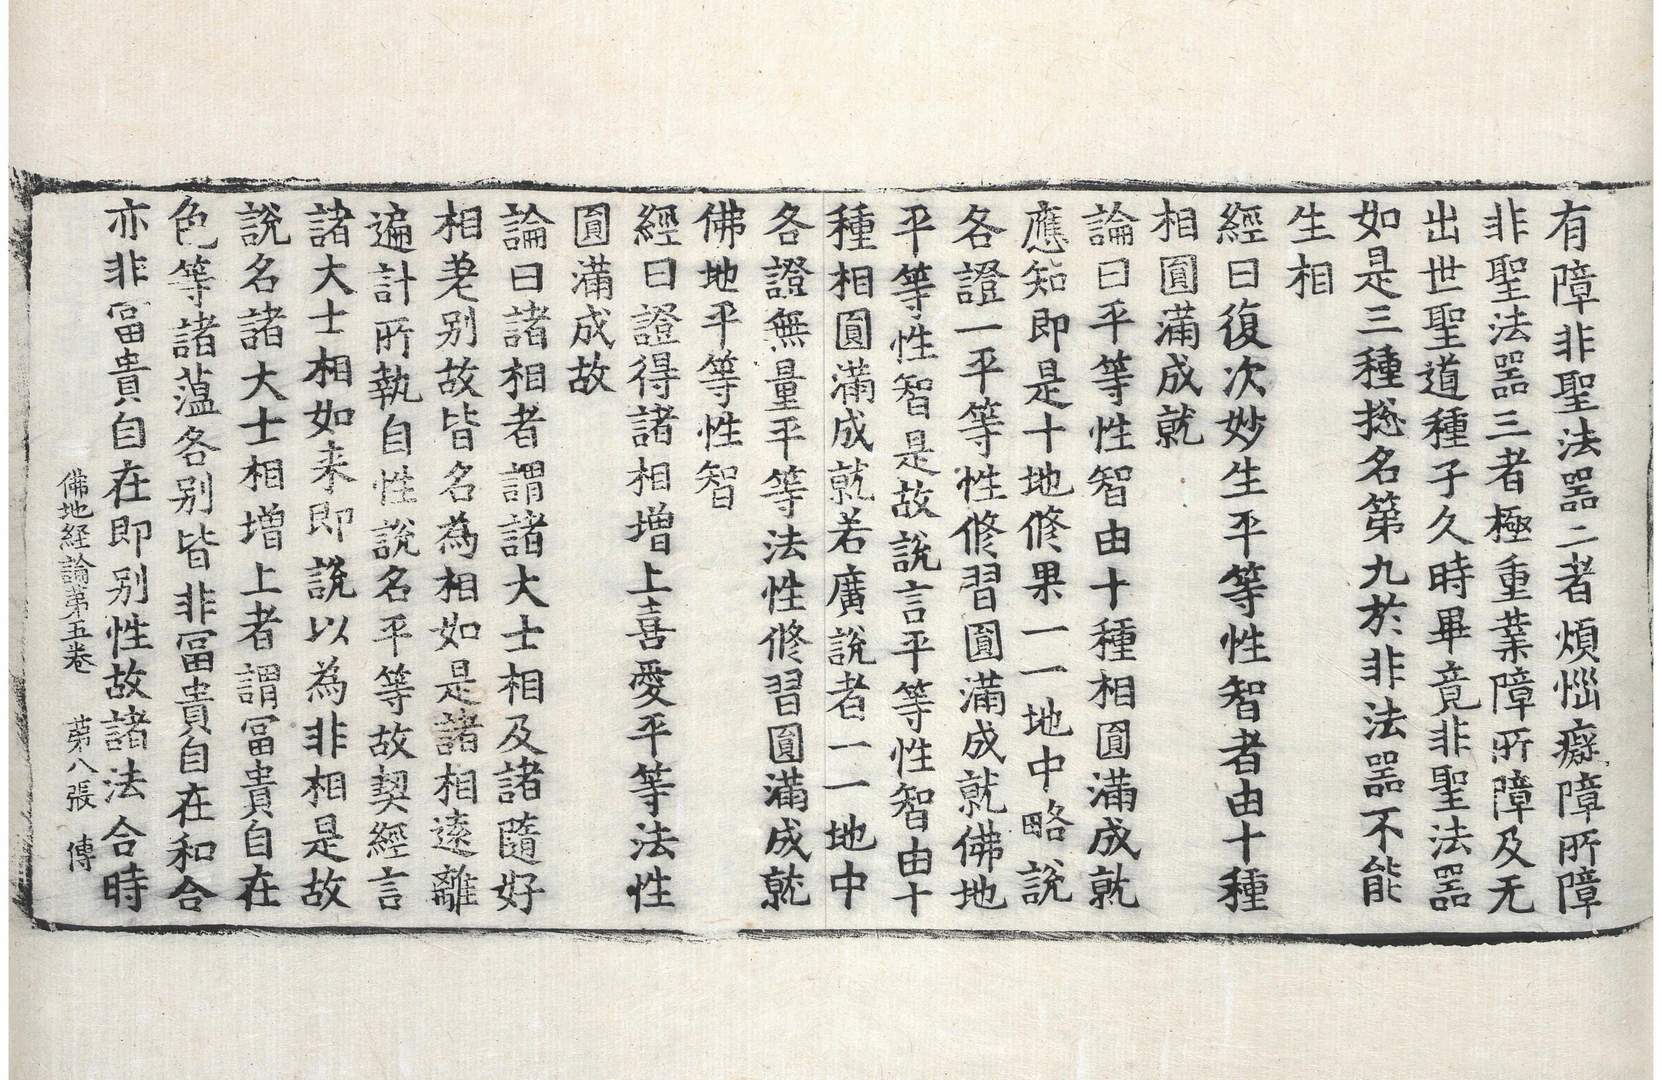 有障非聖法器二者煩惱癡障所障
非聖法器三者極重業障所障及无
出世聖道種子久時畢竟非聖法器
如是三種捴名第九於非法器不能
生相
經曰復次妙生平等性智者由十種
相圓滿成就
論曰平等性智由十種相圓滿成就
應知即是十地修果一一地中略說
各證一平等性修習圓滿成就佛地
平等性智是故說言平等性智由十
種相圓滿成就若廣說者一一地中
各證無量平等法性修習圓滿成就
佛地平等性智
經曰證得諸相增上喜愛平等法性
圓滿成故
論曰諸相者謂諸大士相及諸隨好
相差別故皆名為相如是諸相遠離
遍計所執自性說名平等故契經言
諸大士相如来即說以為非相是故
說名諸大士相增上者謂冨貴自在
色等諸薀各別皆非冨貴自在和合
亦非冨貴自在即別性故諸法合時
佛地経論第五卷 苐八張 傳